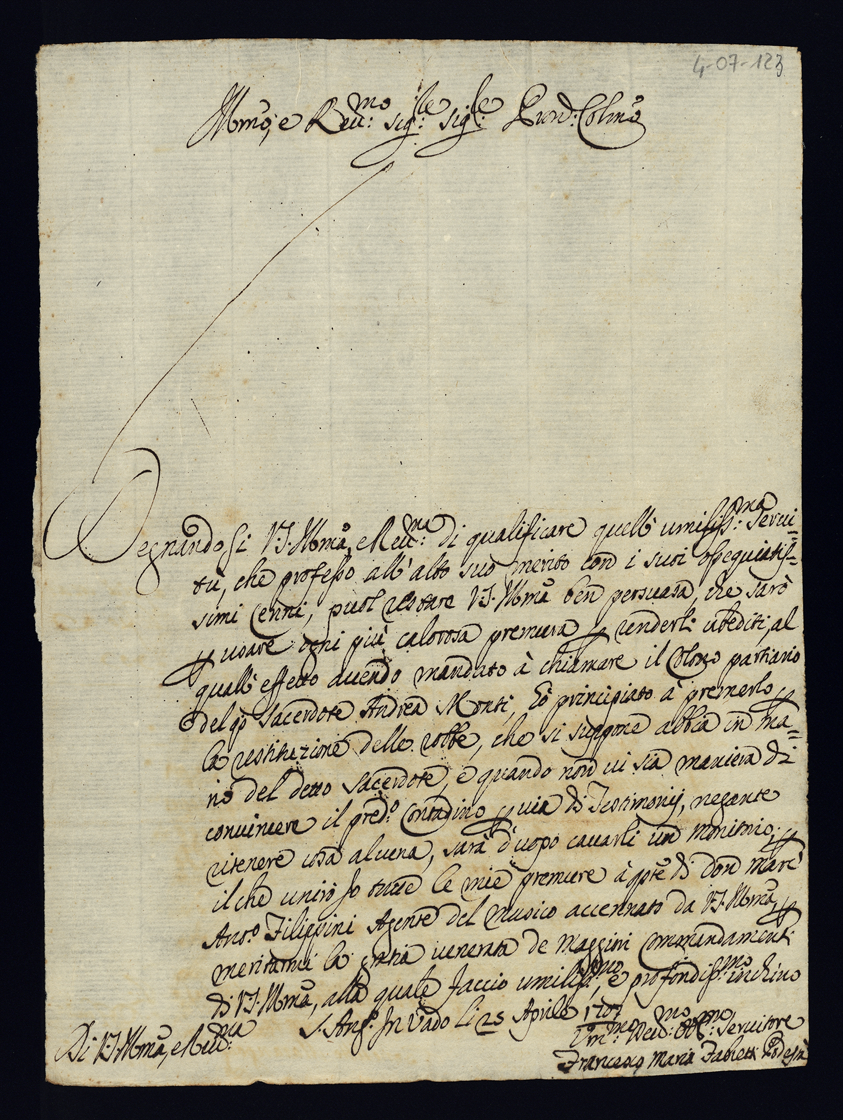 4-07-123
Illmo, e Reu:mo sig:le sig:le Pron: Colmo
Degnandosi V.S. Illma, e Reu:ma di qualificare quell' umiliss:ma serui=
tù, che professo all' alto suo merito con i suoi ossequiatis=
simi Cenni, puol restare V.S. Illma ben persuasa, che sarò
p usare ogni più calorosa premura p renderli ubediti, al
quall' effetto auendo mandato à chiamare il Colono partiario
del qo sacerdote Andrea Monti, ho principiato à premerlo p
la restituzione delle robbe, che si suppone abbia in ma=
no del detto sacerdote, e quando non ui sia maniera di
conuincere il pred:o Contadino p uia di Testimonij, negante
ritenere cosa alcuna, sarà d'uopo cauarli un monitorio; p
il che unirò Jo tutte le mie premure à qte di don Marc'
Ant:o Filippini Agente del musico accennato da V.S. Illma, p
meritarmi la gratia uenerata de Maggiori Commandamenti
di V.S. Illma, alla quale faccio umiliss:mo, e profondiss:mo inchino
S. Ang:o Jn Vado li 25 Aprile 1707
Di V.S. Illma, e Reu:ma
Um:mo Deu:mo Obl:mo seruitore
Francesco Maria Fabietti Podestà